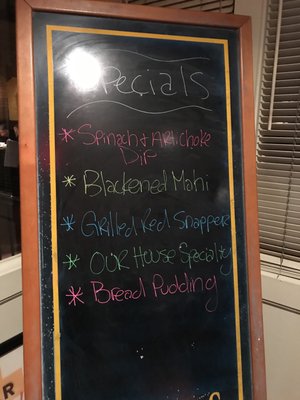 Specials
* Spinach & Artichoke
Dip
* Blackened Mahi
* Grilled Red Snapper
* OUR House Specialty
* Bread Pudding
R